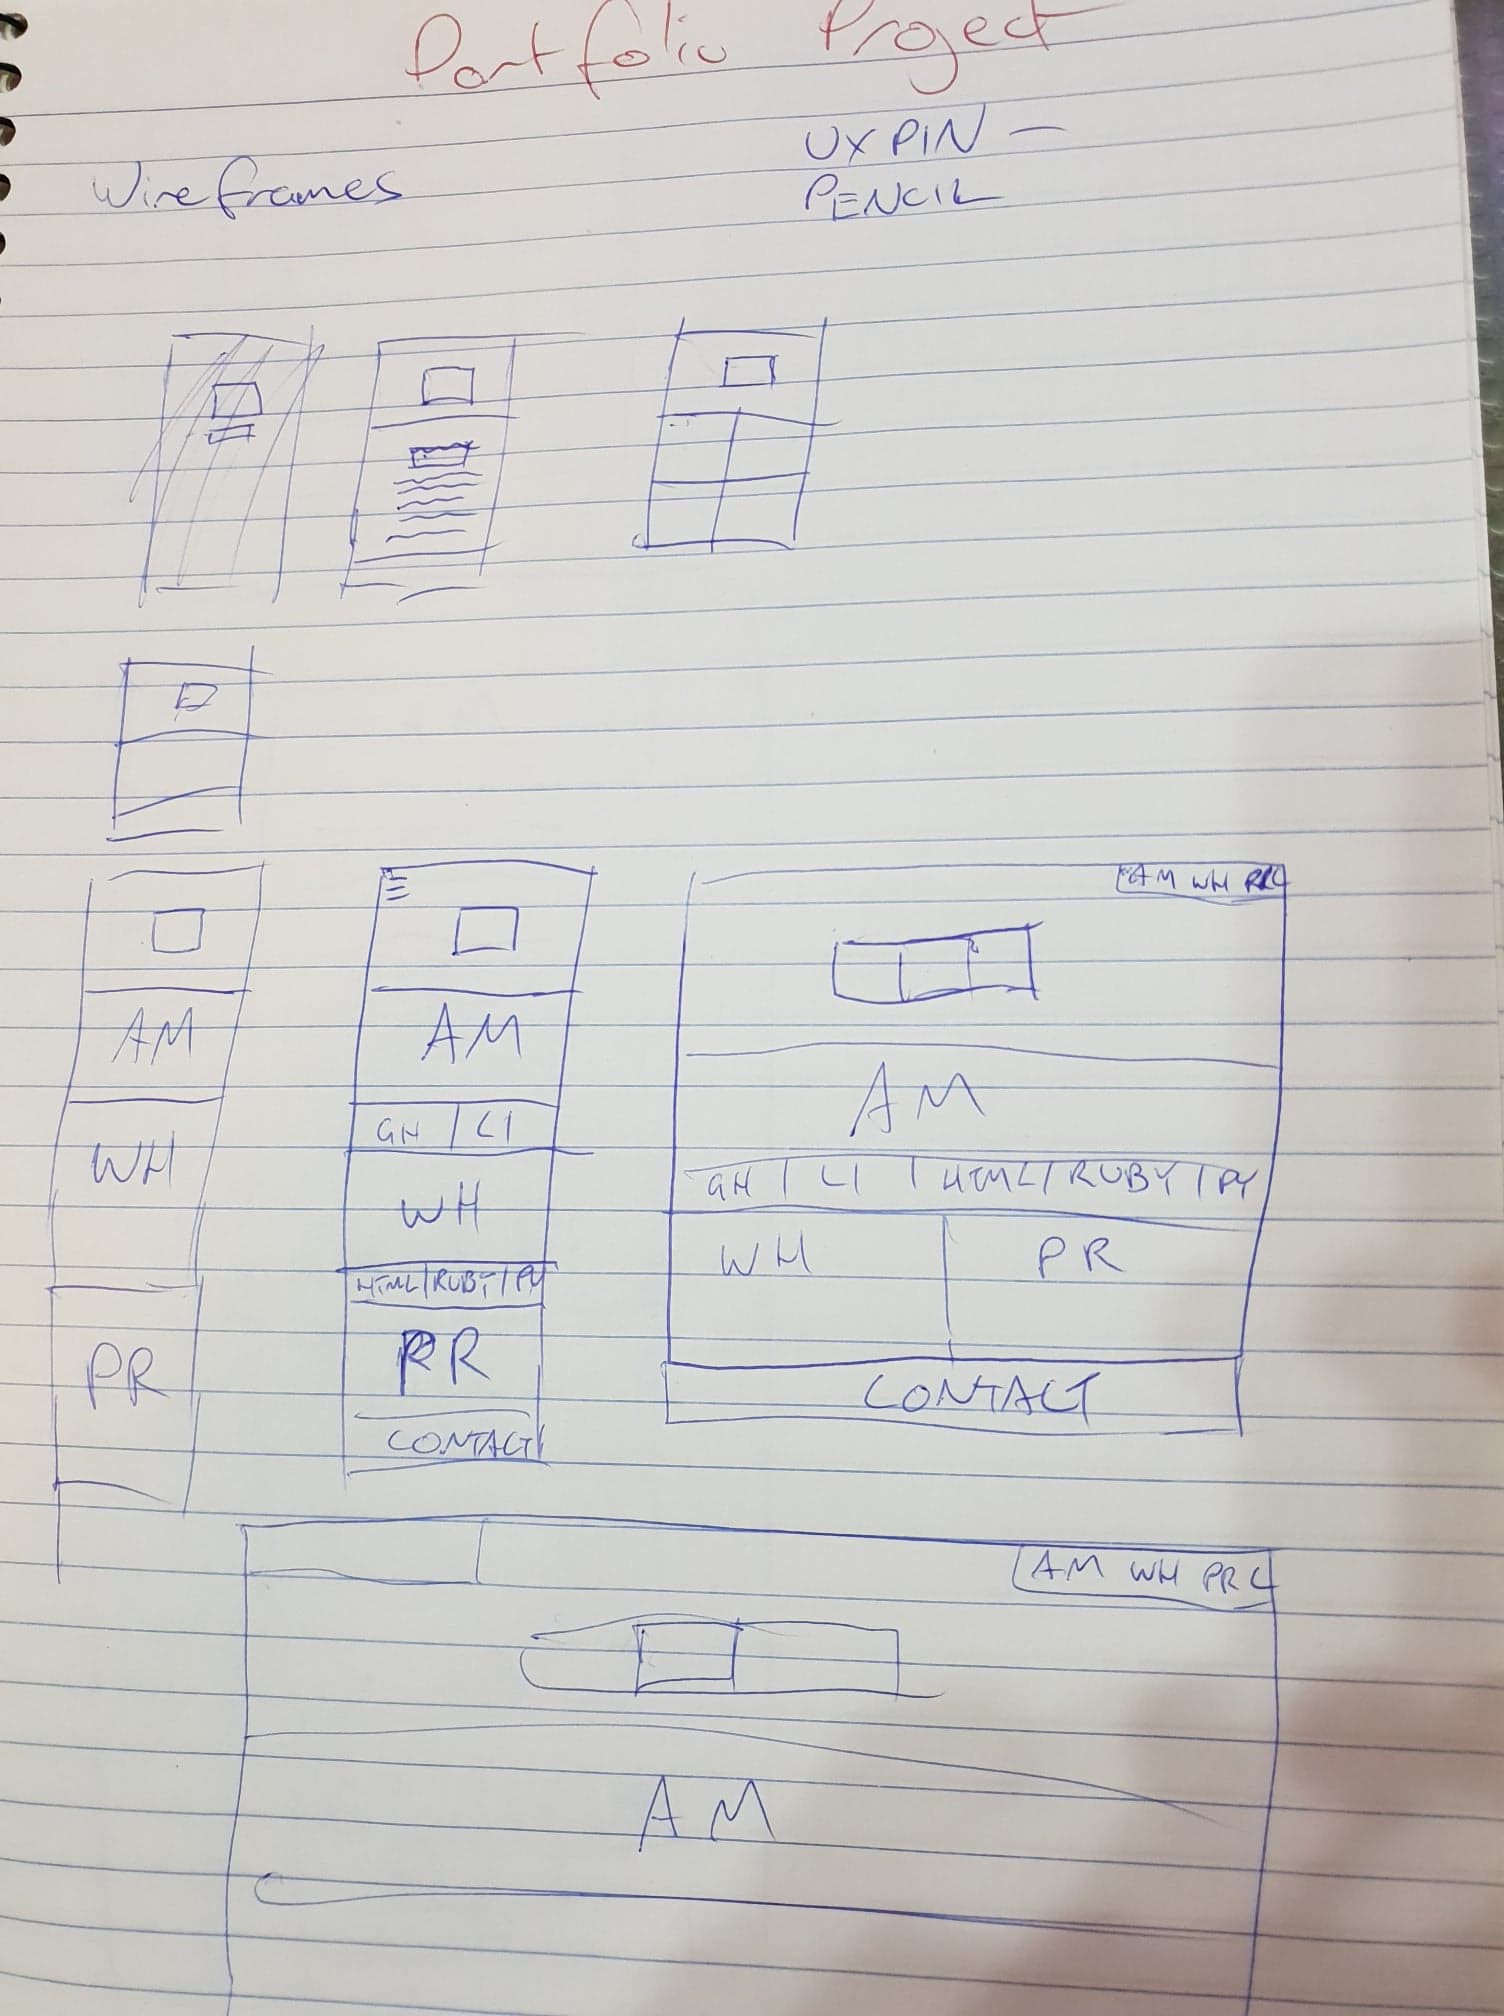 Portfolio Project
UX PIN —
Wireframes
PENCIL
AM
WH
PR
AM
GH | LI
WH
HTML | RUBY | PY
PR
CONTACT
AM WH PR C
AM
GH | LI | HTML | RUBY | PY
WH PR
CONTACT
AM WH PR C
AM